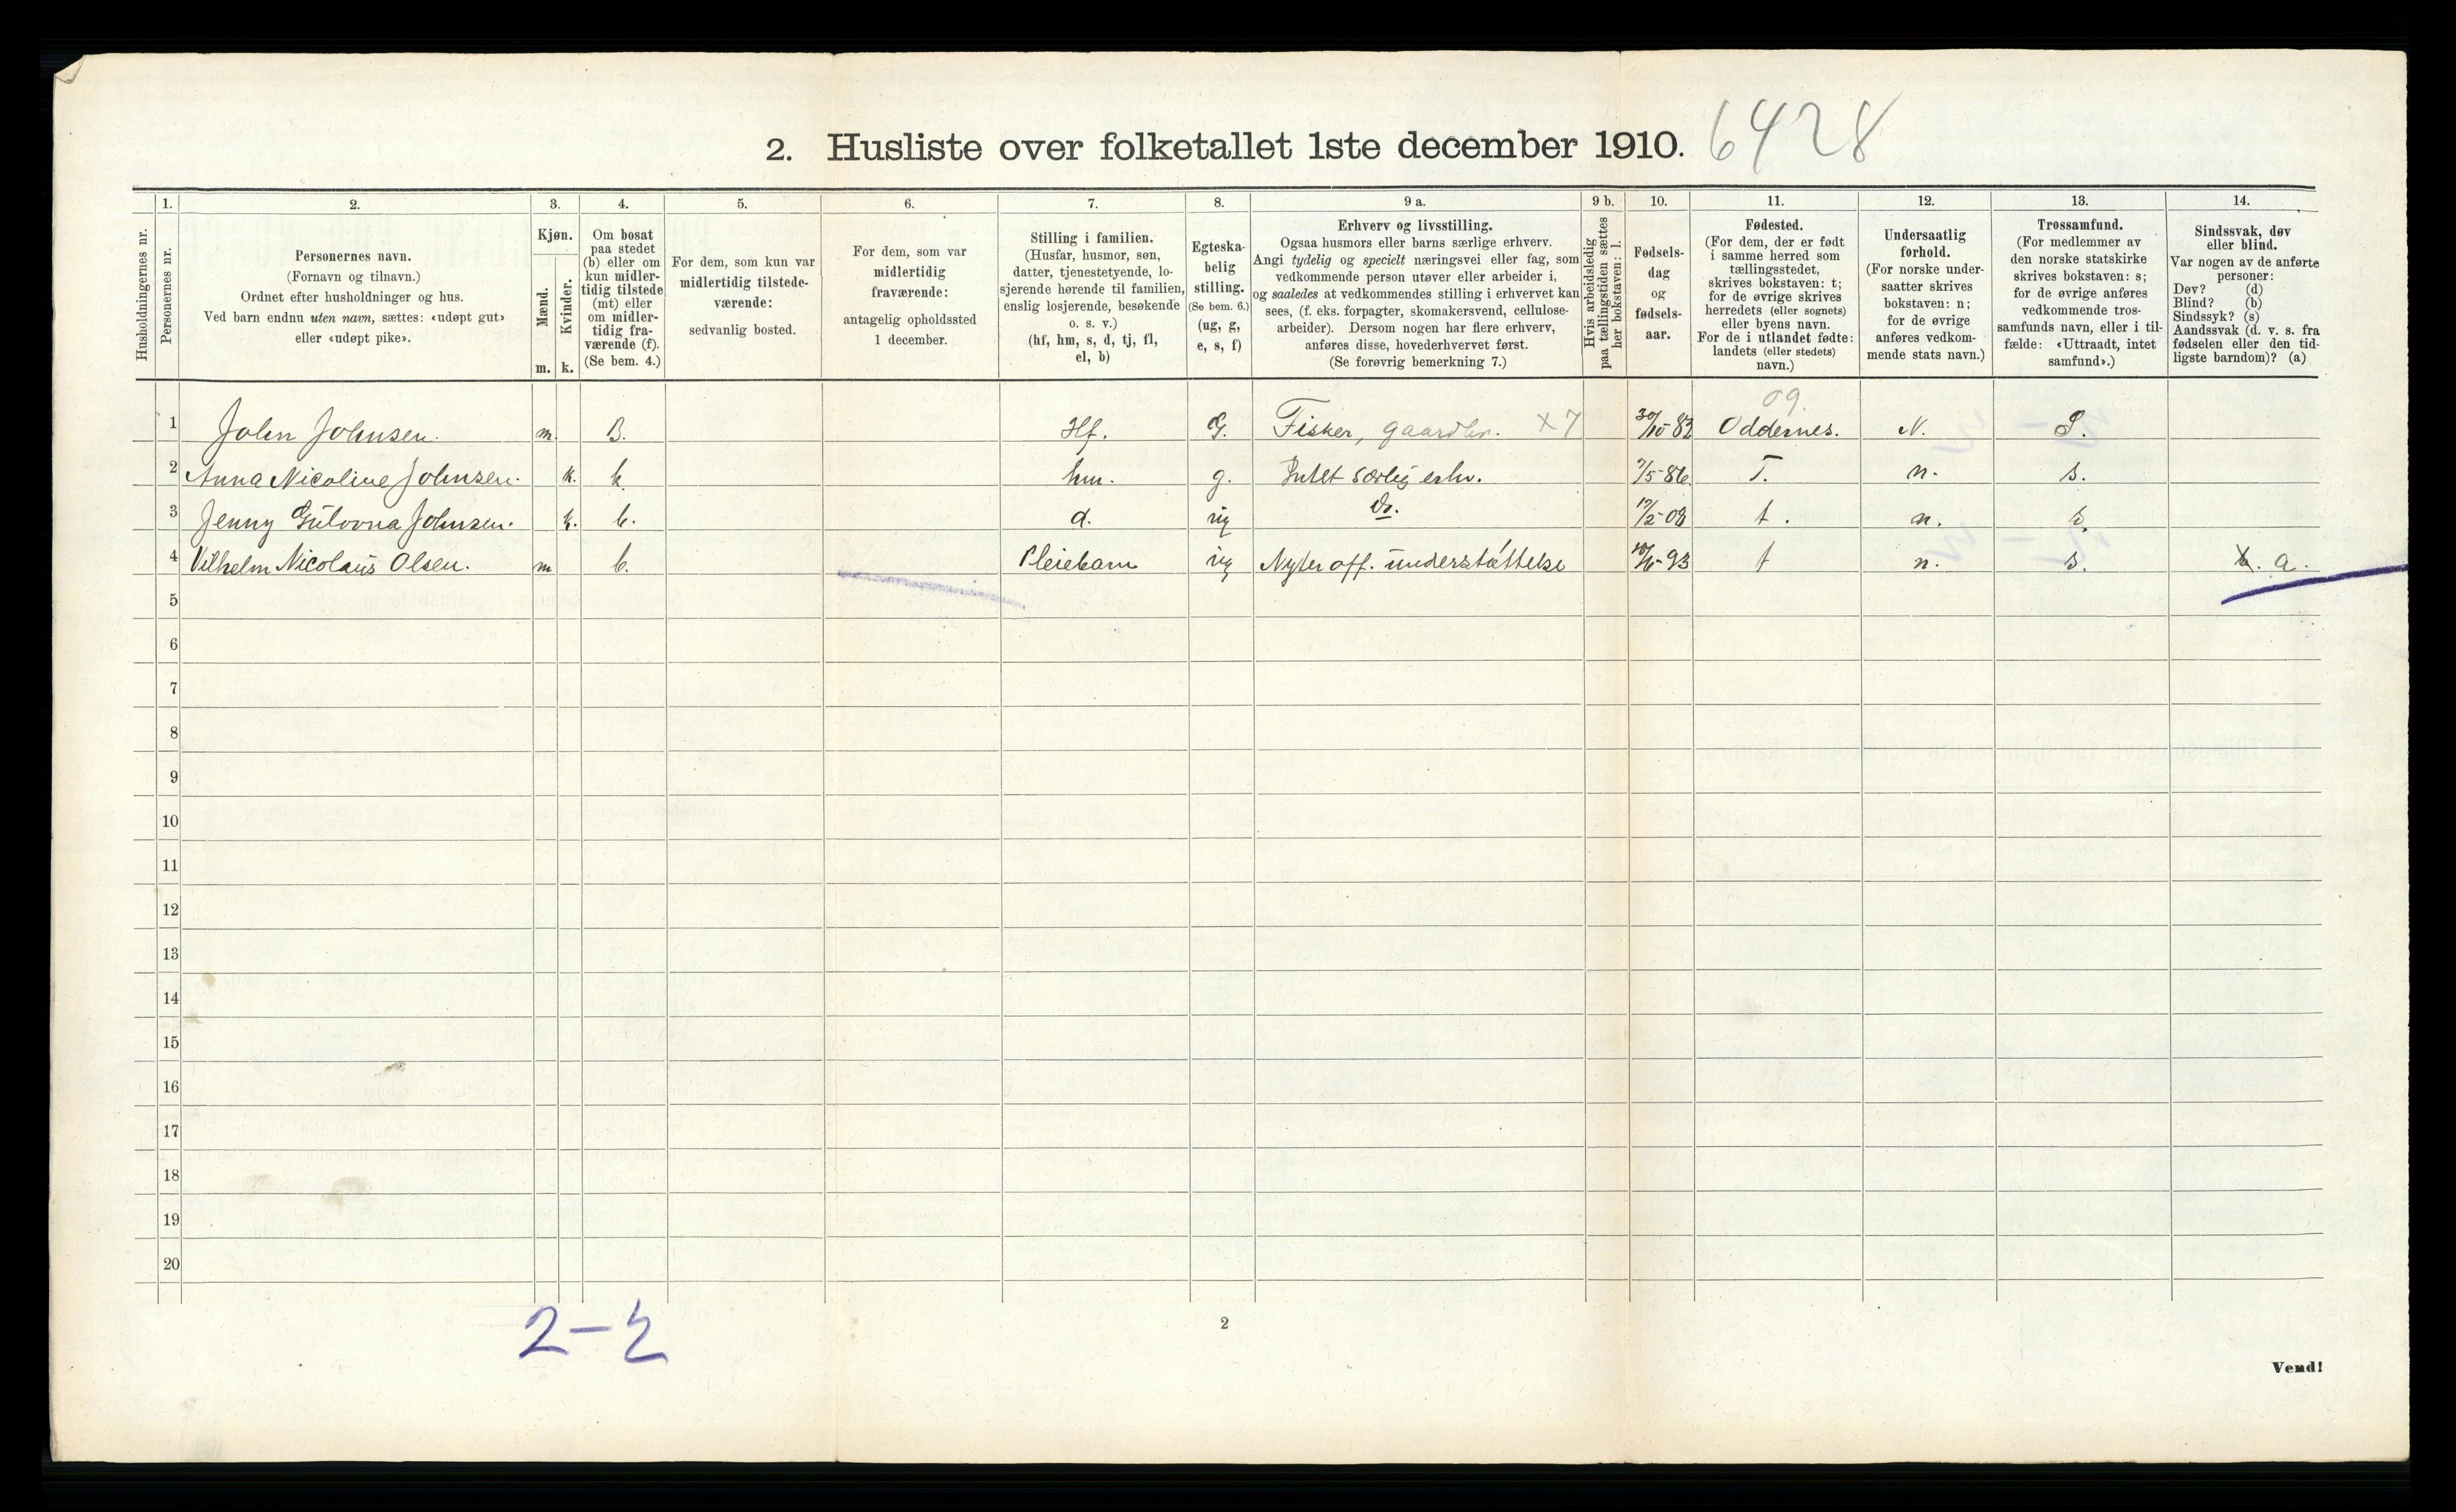 2. Husliste over folketallet 1ste december 1910. 6428
1. 2. 3. 4. 5. 6. 7. 8. 9 a. 9 b. 10. 11. 12. 13. 14.
Husholdningernes nr.
Personernes nr.
Personernes navn.
(Fornavn og tilnavn.)
Ordnet efter husholdninger og hus.
Ved barn endnu uten navn, sættes: «udøpt gut»
eller «udøpt pike».
Kjøn.
Mænd.
Kvinder.
m. k.
Om bosat
paa stedet
(b) eller om
kun midler-
tidig tilstede
(mt) eller
om midler-
tidig fra-
værende (f).
(Se bem. 4.)
For dem, som kun var
midlertidig tilstede-
værende:
sedvanlig bosted.
For dem, som var
midlertidig
fraværende:
antagelig opholdssted
1 december.
Stilling i familien.
(Husfar, husmor, søn,
datter, tjenestetyende, lo-
sjerende hørende til familien,
enslig losjerende, besøkende
o. s. v.)
(hf, hm, s, d, tj, fl,
el, b)
Egteska-
belig
stilling.
(Se bem. 6.)
(ug, g,
e, s, f)
Erhverv og livsstilling.
Ogsaa husmors eller barns særlige erhverv.
Angi tydelig og specielt næringsvei eller fag, som
vedkommende person utøver eller arbeider i,
og saaledes at vedkommendes stilling i erhvervet kan
sees, (f. eks. forpagter, skomakersvend, cellulose-
arbeider). Dersom nogen har flere erhverv,
anføres disse, hovederhvervet først.
(Se forøvrig bemerkning 7.)
Hvis arbeidsledig
paa tællingstiden sættes
her bokstaven: l.
Fødsels-
dag
og
fødsels-
aar.
Fødested.
(For dem, der er født
i samme herred som
tællingsstedet,
skrives bokstaven: t;
for de øvrige skrives
herredets (eller sognets)
eller byens navn.
For de i utlandet fødte:
landets (eller stedets)
navn.)
Undersaatlig
forhold.
(For norske under-
saatter skrives
bokstaven: n;
for de øvrige
anføres vedkom-
mende stats navn.)
Trossamfund.
(For medlemmer av
den norske statskirke
skrives bokstaven: s;
for de øvrige anføres
vedkommende tros-
samfunds navn, eller i til-
fælde: «Uttraadt, intet
samfund».)
Sindssvak, døv
eller blind.
Var nogen av de anførte
personer:
Døv? (d)
Blind? (b)
Sindssyk? (s)
Aandssvak (d. v. s. fra
fødselen eller den tid-
ligste barndom)? (a)
09
1 John Johnsen. m. B. Hf. G. Fisker, gaardbr. X7 30/10-82 Oddernes. N. S.
2 Anna Nicoline Johnsen. k. b. hm. g. Intet særlig erhv. 7/5-86. T. n. s.
3 Jenny Gulovna Johnsen. k. b. d. ug Do. 12/2-08 t. n. s.
4 Vilhelm Nicolaus Olsen. m b. Pleiebarn ug Nyter off. understøttelse 10/6-93 t n. s. a.
5
6
7
8
9
10
11
12
13
14
15
16
17
18
19
20
2-2
2
Vend!